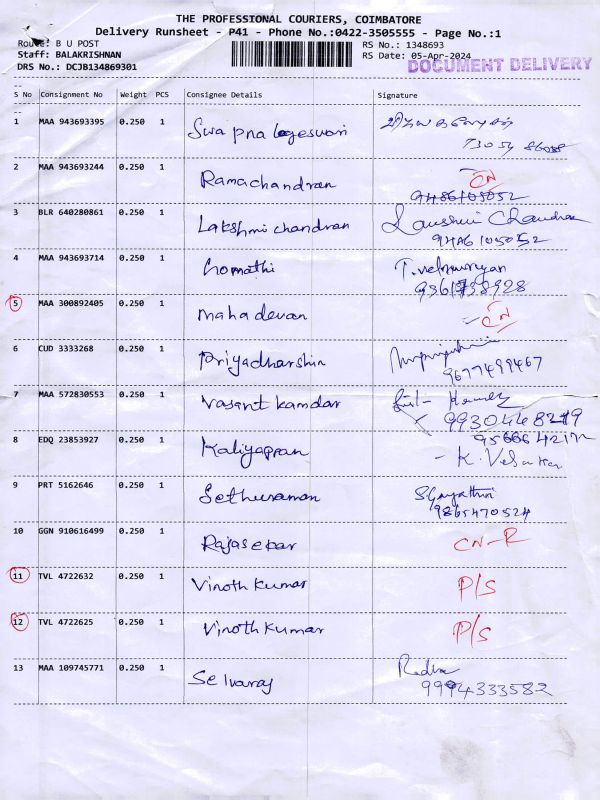 THE PROFESSIONAL COURIERS, COIMBATORE
Delivery Runsheet - P41 - Phone No.:0422-3505555 - Page No.:1
Route: B U POST RS No.: 1348693
Staff: BALAKRISHNAN RS Date: 05-Apr-2024
DOCUMENT DELIVERY
DRS No.: DCJB134869301
S No Consignment No Weight PCS Consignee Details Signature
1 MAA 943693395 0.250 1 Swapna logeswari
73054 86088
2 MAA 943693244 0.250 1 Ramachandran CN
9486105052
3 BLR 640280861 0.250 1 Lakshmi chandran
9486105052
4 MAA 943693714 0.250 1 Gomathi T.velmurugan
9361738928
5 MAA 300892405 0.250 1 mahadevan - CN
6 CUD 3333268 0.250 1 Priyadharshin
9677499467
7 MAA 572830553 0.250 1 Vasant kamdar
9930448219
8 EDQ 23853927 0.250 1 Kaliyappan
- K. Vel
9 PRT 5162646 0.250 1 Sethuraman S.Gayathri
9865470524
10 GGN 910616499 0.250 1 Rajasekar CN-R
11 TVL 4722632 0.250 1 Vinoth kumar P/S
12 TVL 4722625 0.250 1 Vinoth kumar P/S
13 MAA 109745771 0.250 1 Selvaraj Radha
9994333582